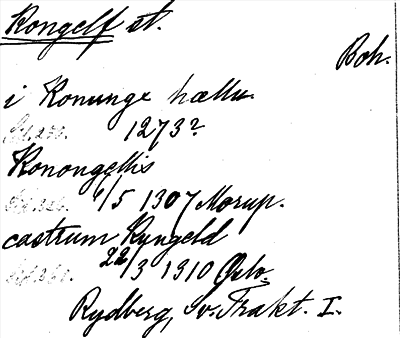 Kongelf st.
Boh.
i Konunge hællu.
1273?
Konongellis
6/5 1307 Morup.
castrum Kyngeld
22/3 1310 Oslo.
Rydberg, Sv. Trakt. I.